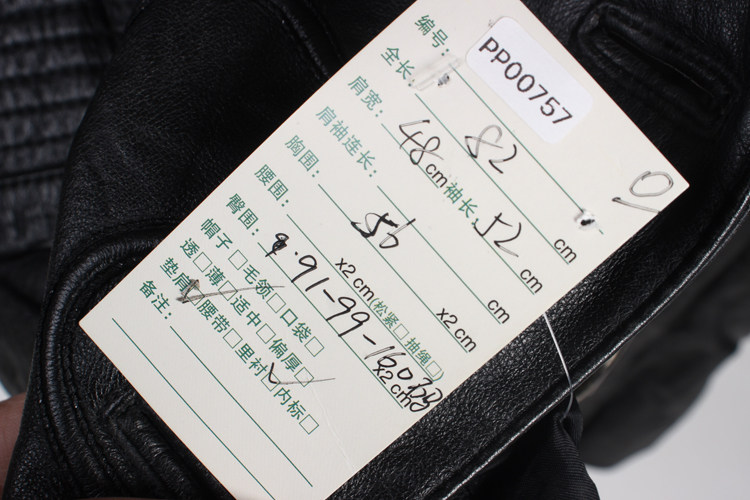 编号: PP00757
全长: 82 cm
肩宽: 48 cm 袖长: 52 cm
肩袖连长: cm
胸围: 56 x2 cm
腰围: x2 cm(松紧□ 抽绳□)
臀围: x2 cm
91-99-160
帽子□ 毛领□ 口袋□
透□ 薄□ 适中□ 偏厚□
垫肩□ 腰带□ 里衬□ 内标□
备注:
0